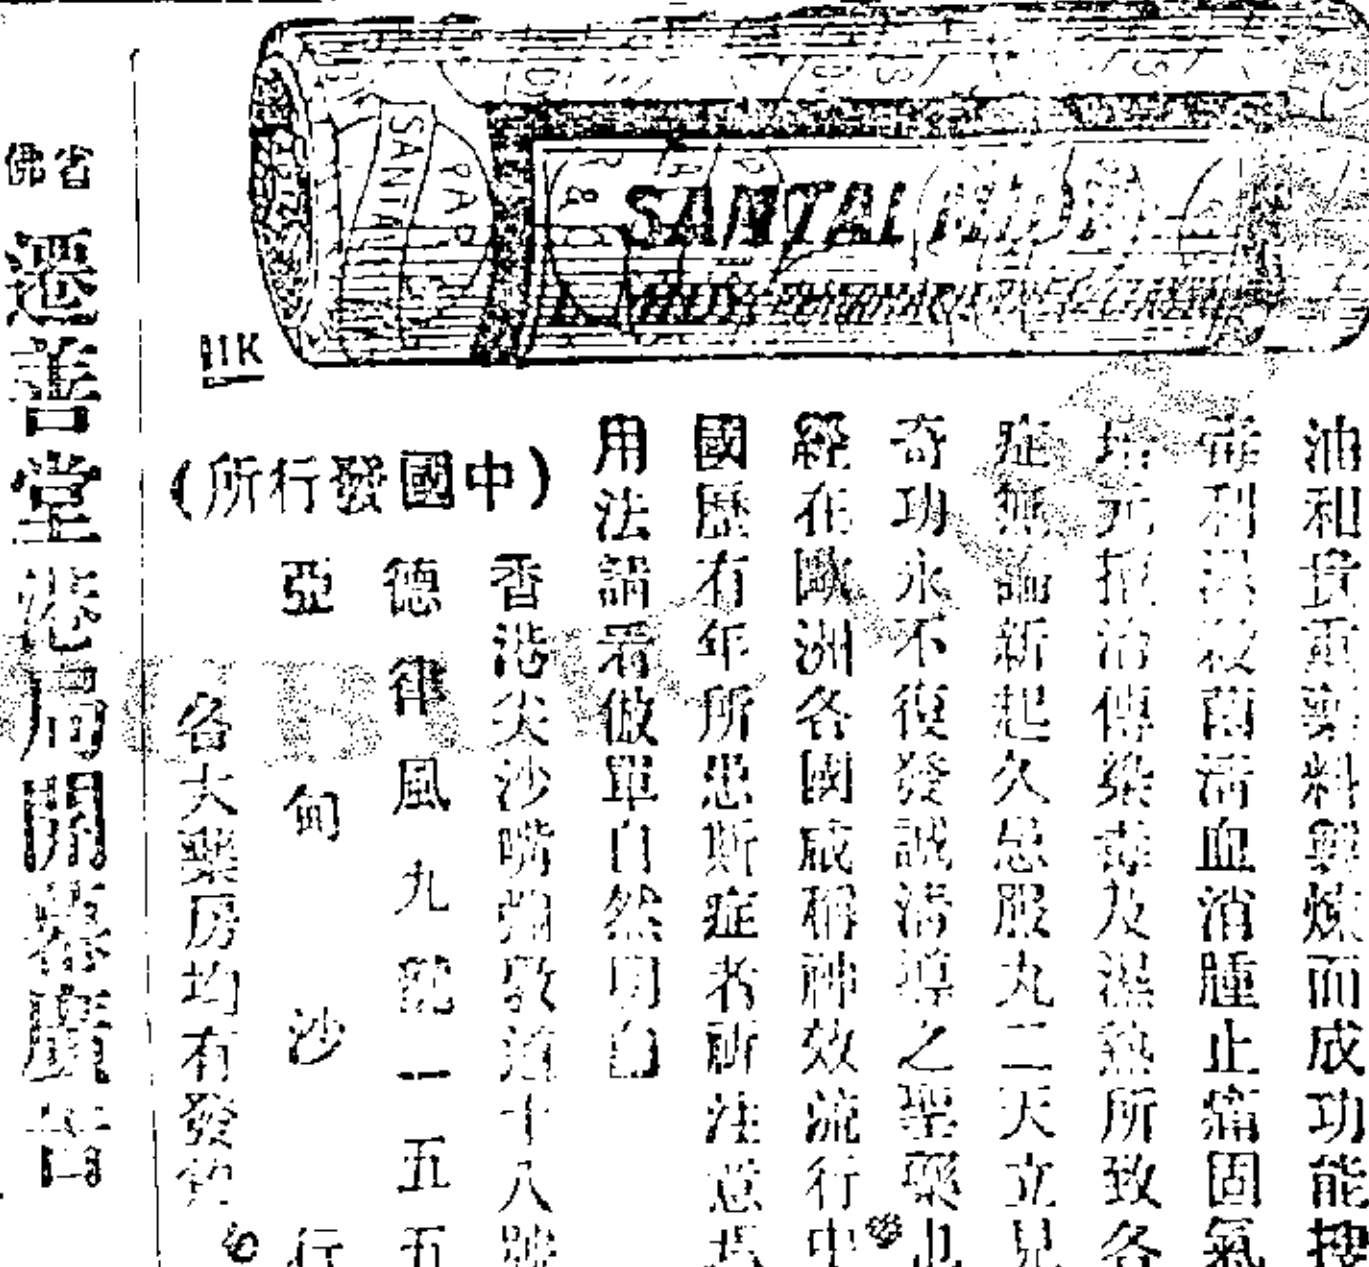 SANTAL MIDY
SANTAL
油和貴重藥料製煉而成功能搜
毒利濕殺菌清血消腫止痛固氣
培元担治傳染毒及濕熱所致各
症無論新起久患服丸二天立見
奇功永不復發誠清導之聖藥也
經在歐洲各國咸稱神效流行中
國歷有年所患斯症者祈注意焉
用法請看倣單自然明白
(中國發行所)
香港尖沙嘴 道十八號
德律風九龍一五五
亞甸沙行
各大藥房均有發售
省佛
善堂 局 告